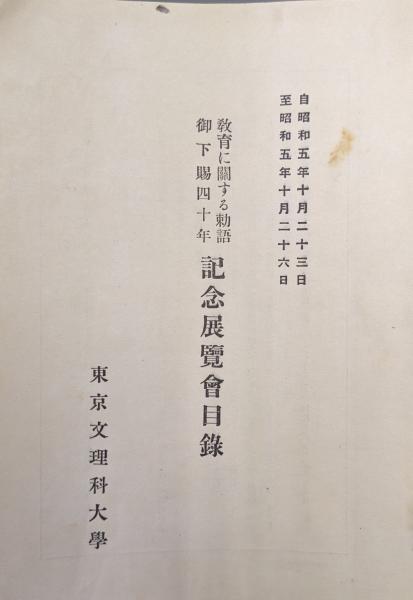 自昭和五年十月二十三日
至昭和五年十月二十六日
教育に關する勅語
御下賜四十年
記念展覽會目錄
東京文理科大學